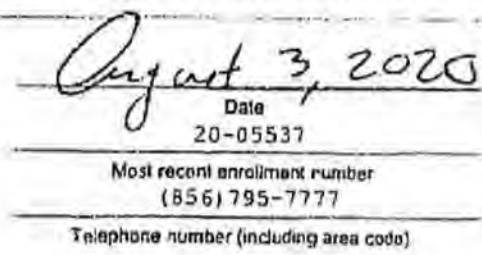 August 3, 2020
Date
20-05537
Most recent enrollment number
(856) 795-7777
Telephone number (including area code)